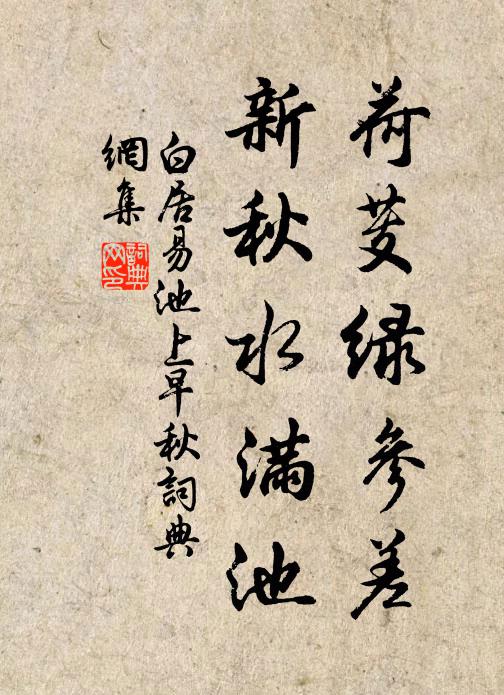 荷芰綠參差
新秋水滿池
白居易池上早秋詞典
網集
詞典
网印